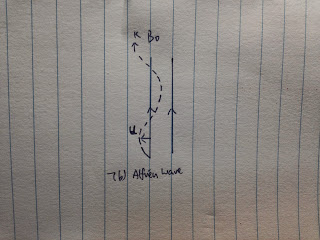 K B0
u
7(b) Alfven wave